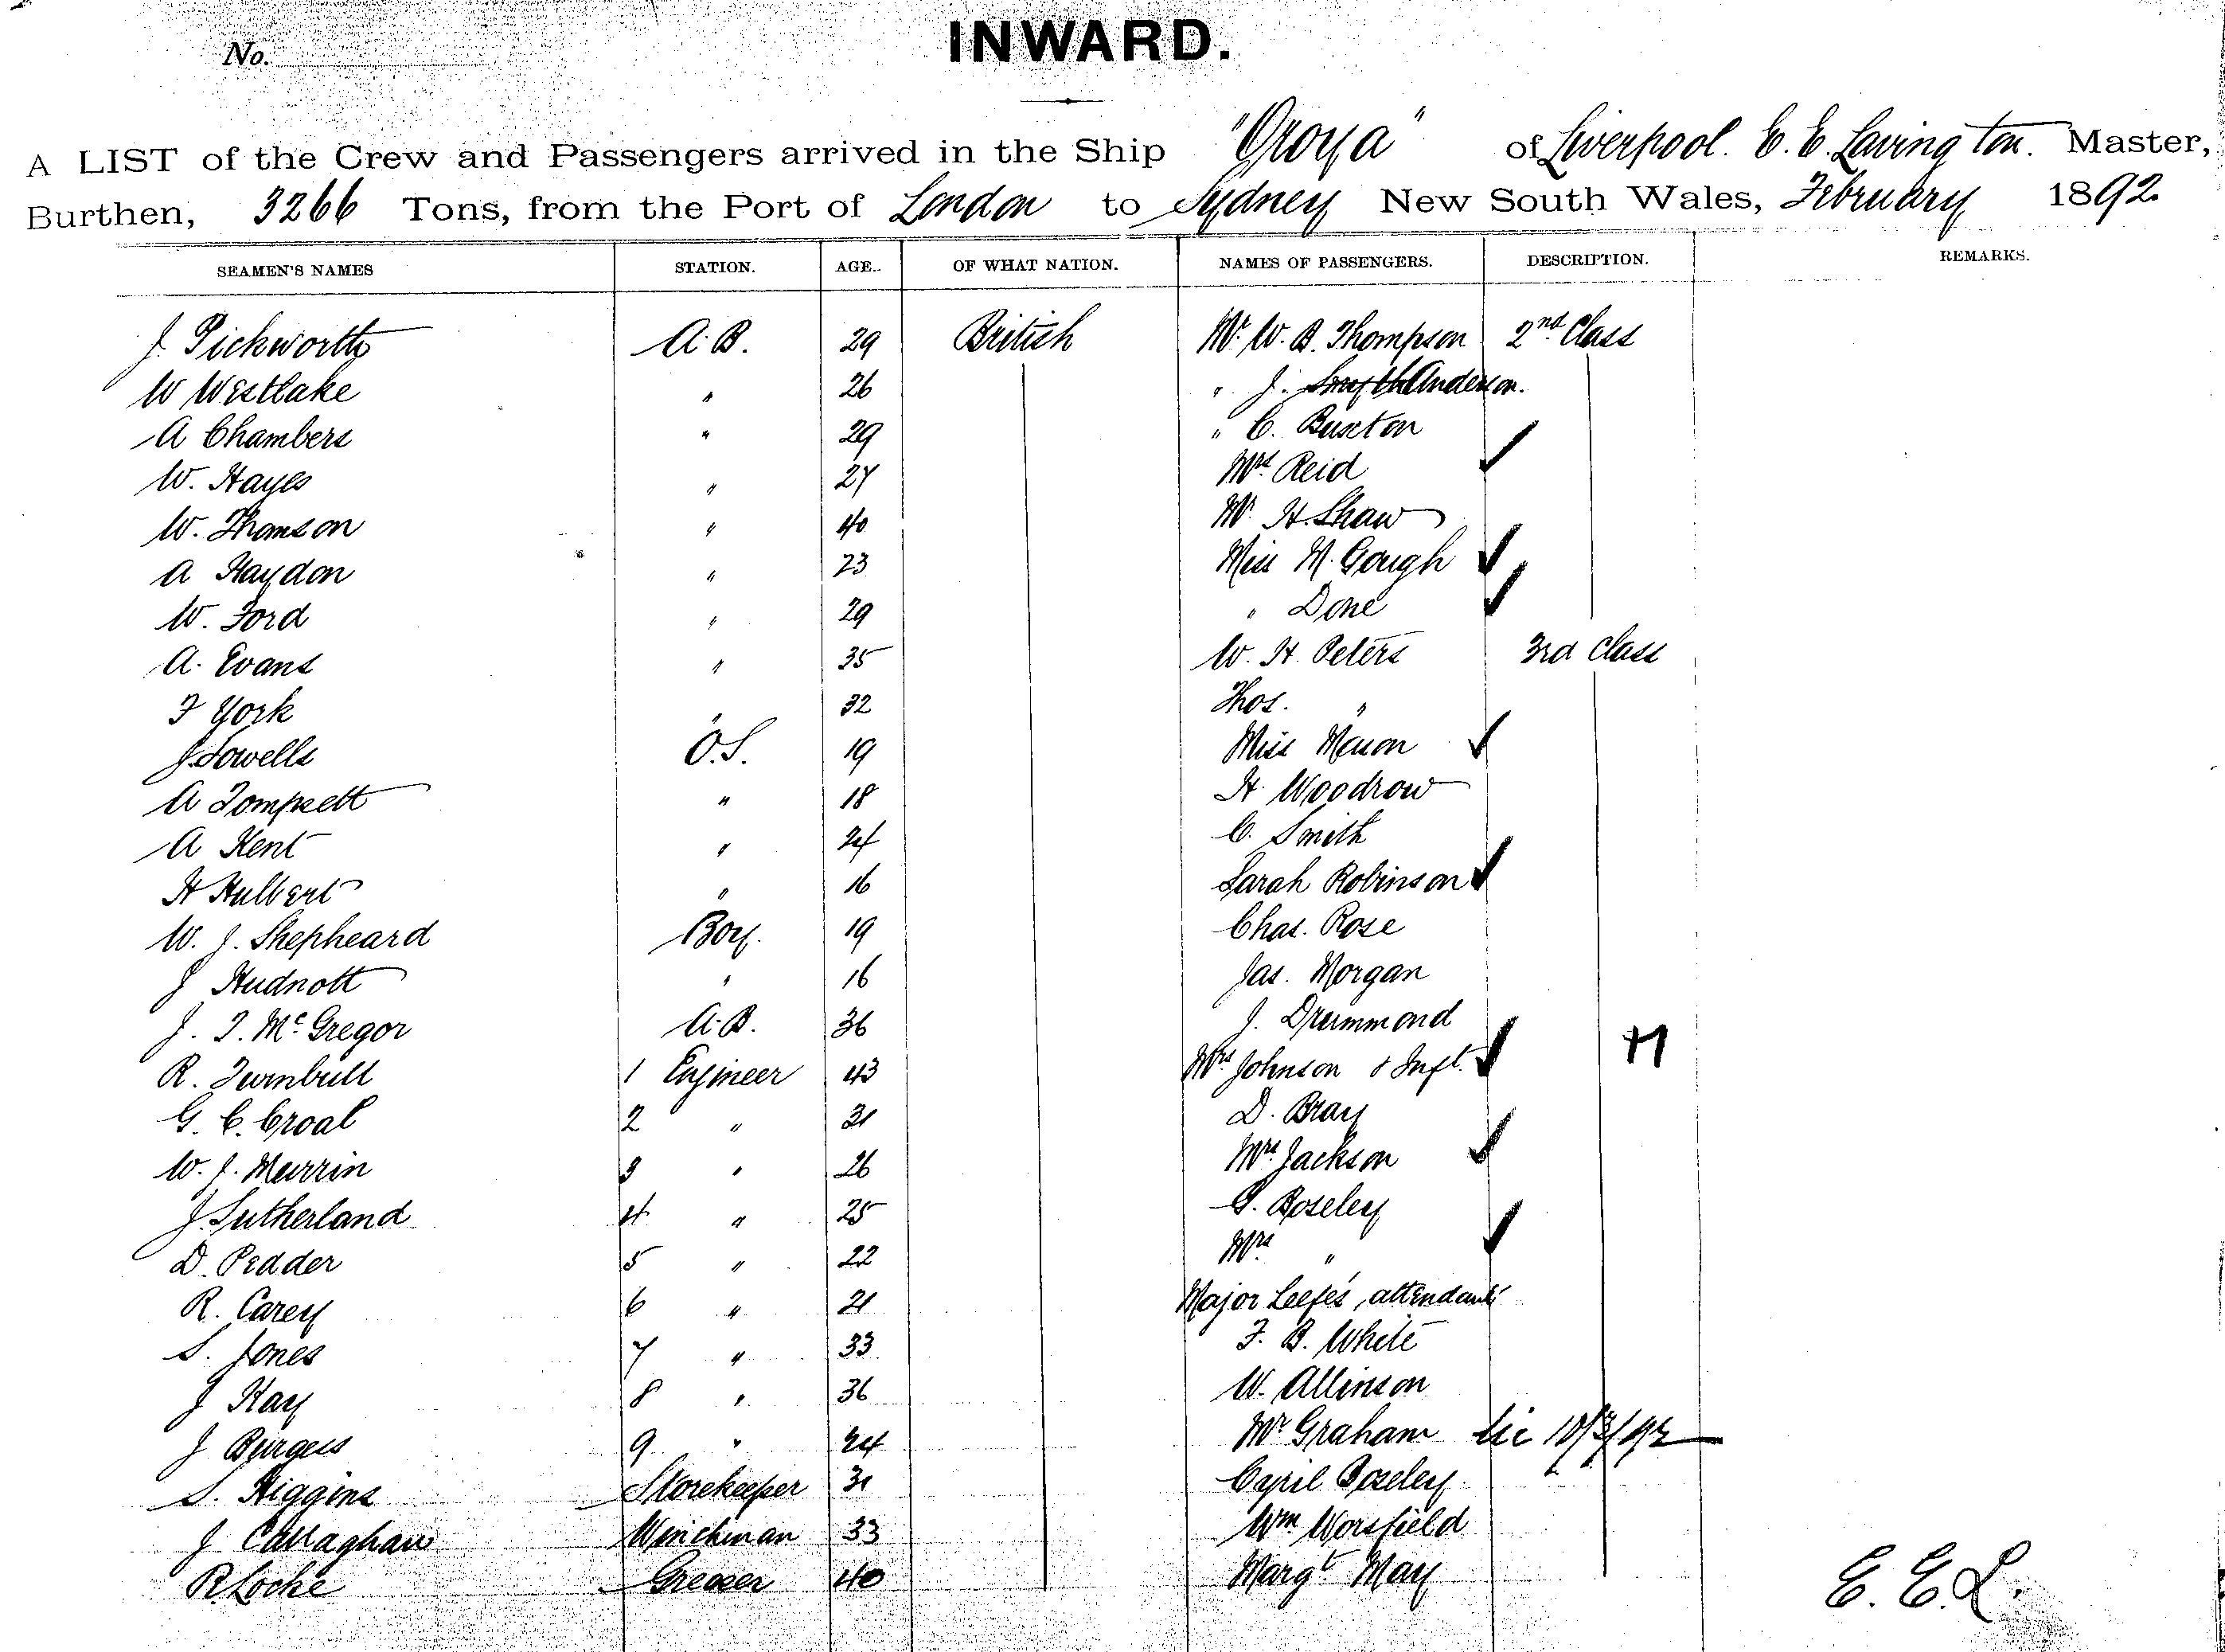 No.
INWARD.
A LIST of the Crew and Passengers arrived in the Ship "Oroya" of Liverpool. E. E. Lavington. Master,
Burthen, 3266 Tons, from the Port of London to Sydney New South Wales, February 1892.
SEAMEN'S NAMES STATION. AGE. OF WHAT NATION. NAMES OF PASSENGERS. DESCRIPTION. REMARKS.
J. Pickworth A.B. 29 British Mr. W. B. Thompson 2nd Class
W Westlake " 26 " J. Anderson.
A Chambers " 29 " C. Buxton
W. Hayes " 27 Mrs. Reid
W. Thomson " 40 Mr. H. Shaw
A Haydon " 23 Miss M. Gough
W. Ford " 29 " Done
A. Evans " 35 W. H. Peters 3rd Class
F York " 32 Thos. "
J. Sowells O.S. 19 Miss Mason
A Tompsett " 18 H. Woodrow
A Kent " 24 C. Smith
H Hulbert " 16 Sarah Robinson
W. J. Shepheard Boy. 19 Chas. Rose
J Hudnott " 16 Jas. Morgan
J. T. McGregor A.B. 36 J. Drummond
R. Turnbull 1 Engineer 43 Mrs Johnson & Inft.
G. C. Croal 2 " 31 D. Bray
W. J. Murrin 3 " 26 Mrs. Jackson
J. Sutherland 4 " 25 G. Boseley
D. Pedder 5 " 22 Mrs "
R. Carey 6 " 21 Major Leefe's, attendant
S. Jones 7 " 33 F. B. White
J Kay 8 " 36 W. Allinson
J Burgess 9 " 24 Mr Graham
S. Higgins Storekeeper 31 Cyril Boseley
J Callaghan Winchman 33 Wm Worsfield
R Locke Greaser 40 Margt May
E. E. L.